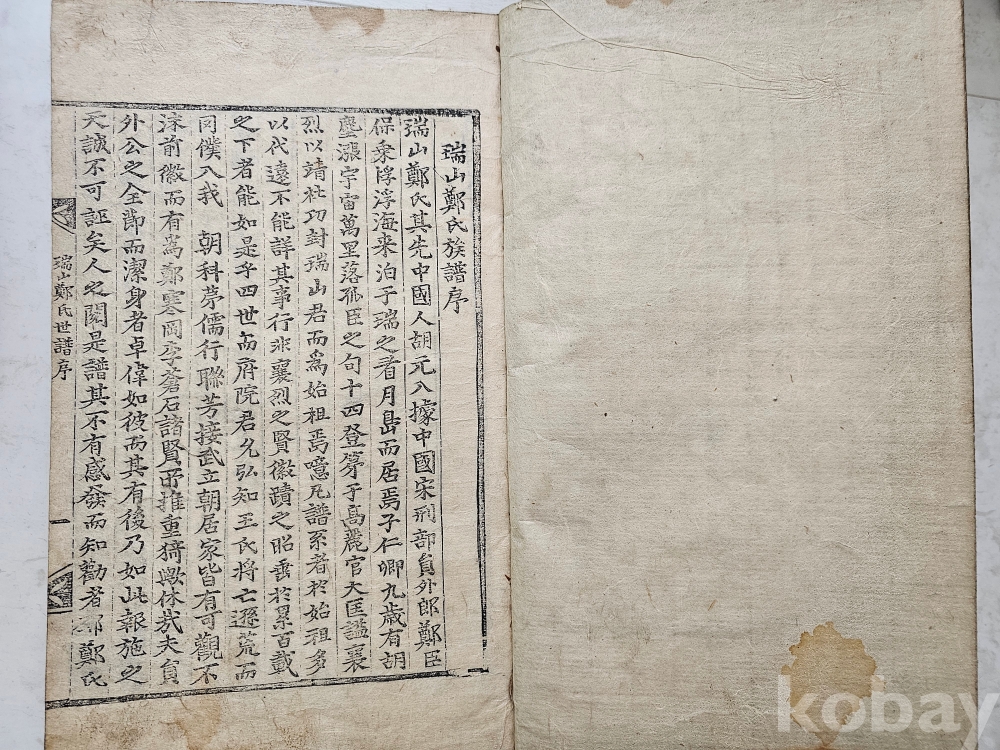 瑞山鄭氏族譜序
瑞山鄭氏其先中國人胡元入據中國宋刑部員外郎鄭臣
保衆浮海来泊于瑞之看月島而居焉子仁卿九歳有胡
塵漲宇宙萬里落孤臣之句十四登第于高麗官大匡謚襄
烈以靖社功封瑞山君而爲始祖焉噫凡譜系者於始祖多
以代遠不能詳其事行非襄烈之賢徽蹟之昭垂於累百載
之下者能如是乎四世而府院君允弘知王氏將亡遜荒而
罔僕入我 朝科第儒行聯芳接武立朝居家皆有可觀不
沫前徽而有爲鄭寒岡李蒼石諸賢所推重猗歟休哉夫員
外公之全節而潔身者卓偉如彼而其有後乃如此報施之
天誠不可誣矣人之閱是譜其不有感發而知勸者耶鄭氏
瑞山鄭氏世譜序
一
kobay